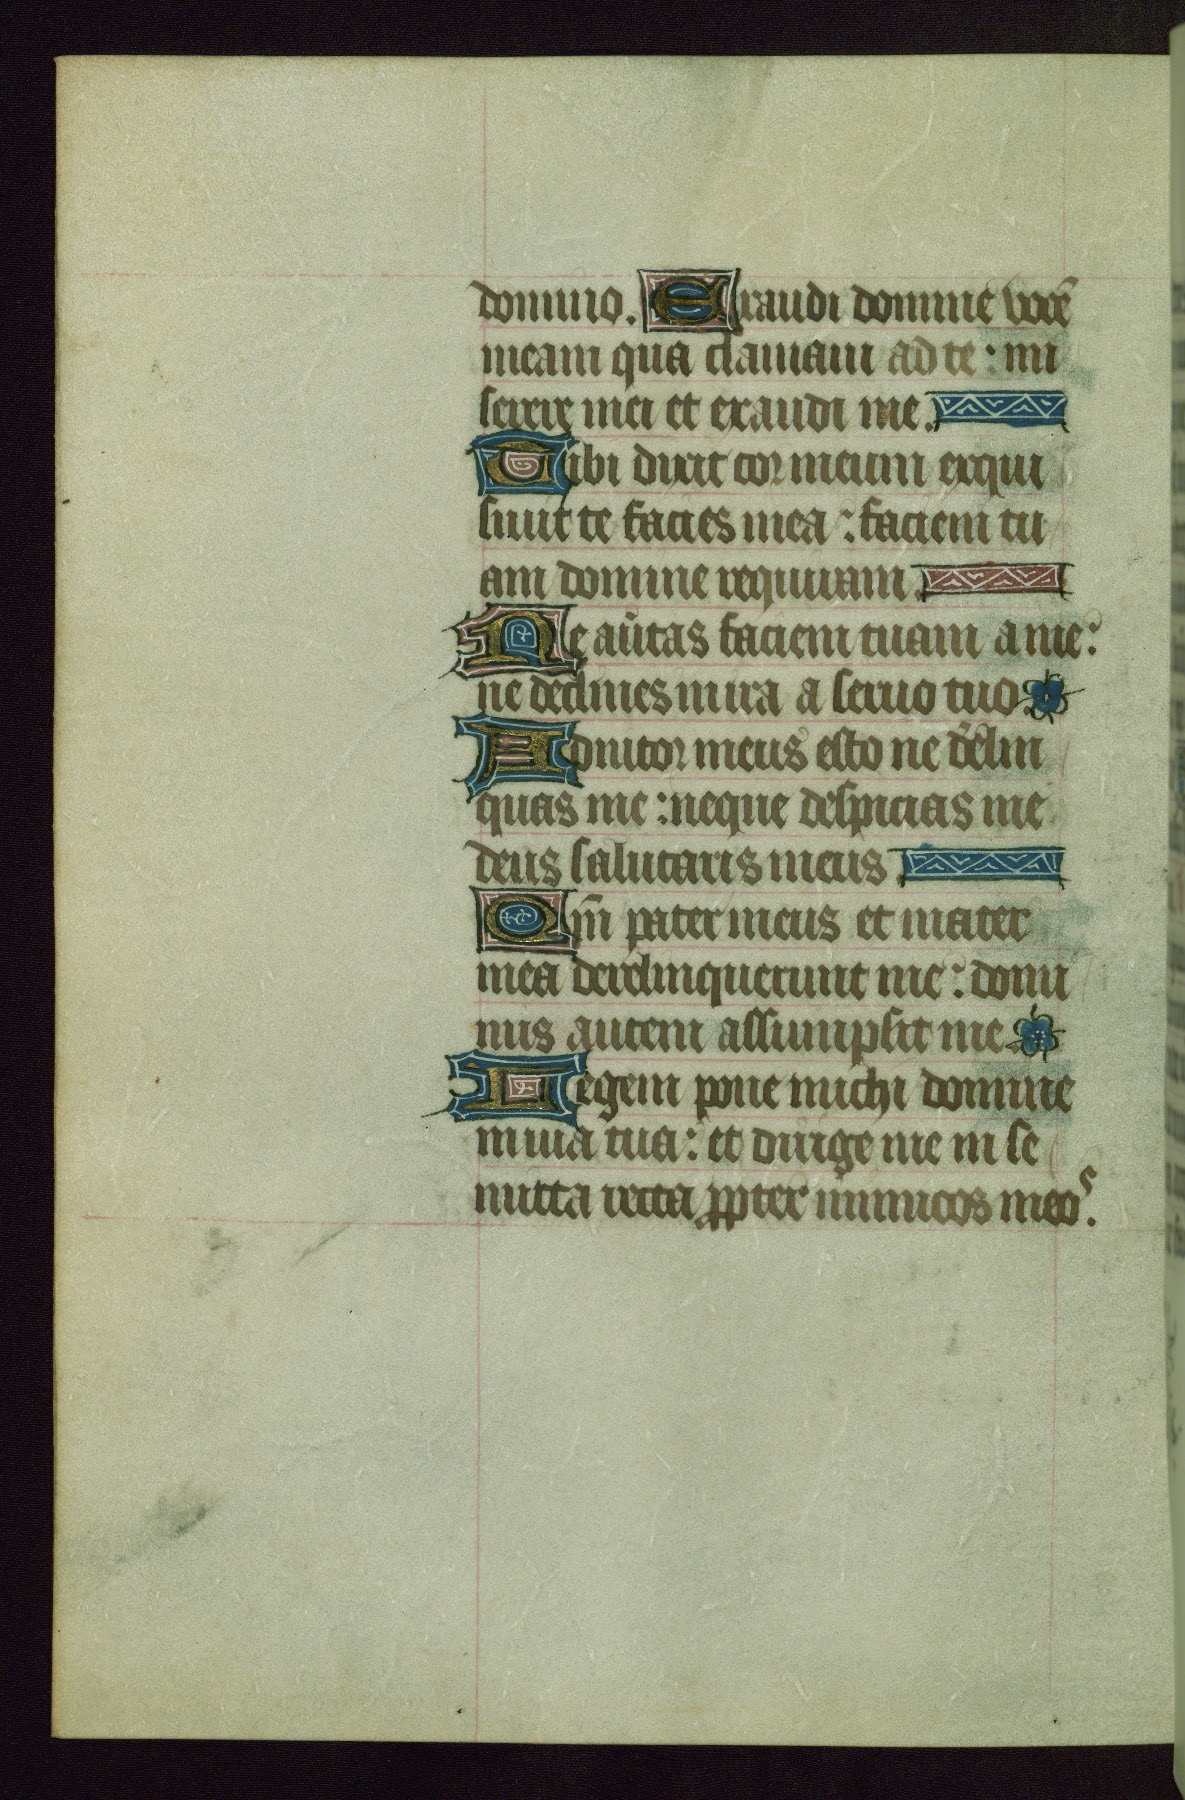 domino. Exaudi domine vocē
meam qua clamaui ad te : mi
serere mei et exaudi me.
Tibi dixit cor meum exqui
siuit te facies mea : faciem tu
am domine requiram.
Ne au̅tas faciem tuam a me :
ne declines in ira a seruo tuo.
Adiutor meus esto ne derelin
quas me : neque despicias me
deus salutaris meus
Qm̄ pater meus et mater
mea derelinquerunt me : domi
nus autem assumpsit me.
Legem pone michi domine
in uia tua : et dirige me in se
mitta recta ꝓpter inimicos meos.